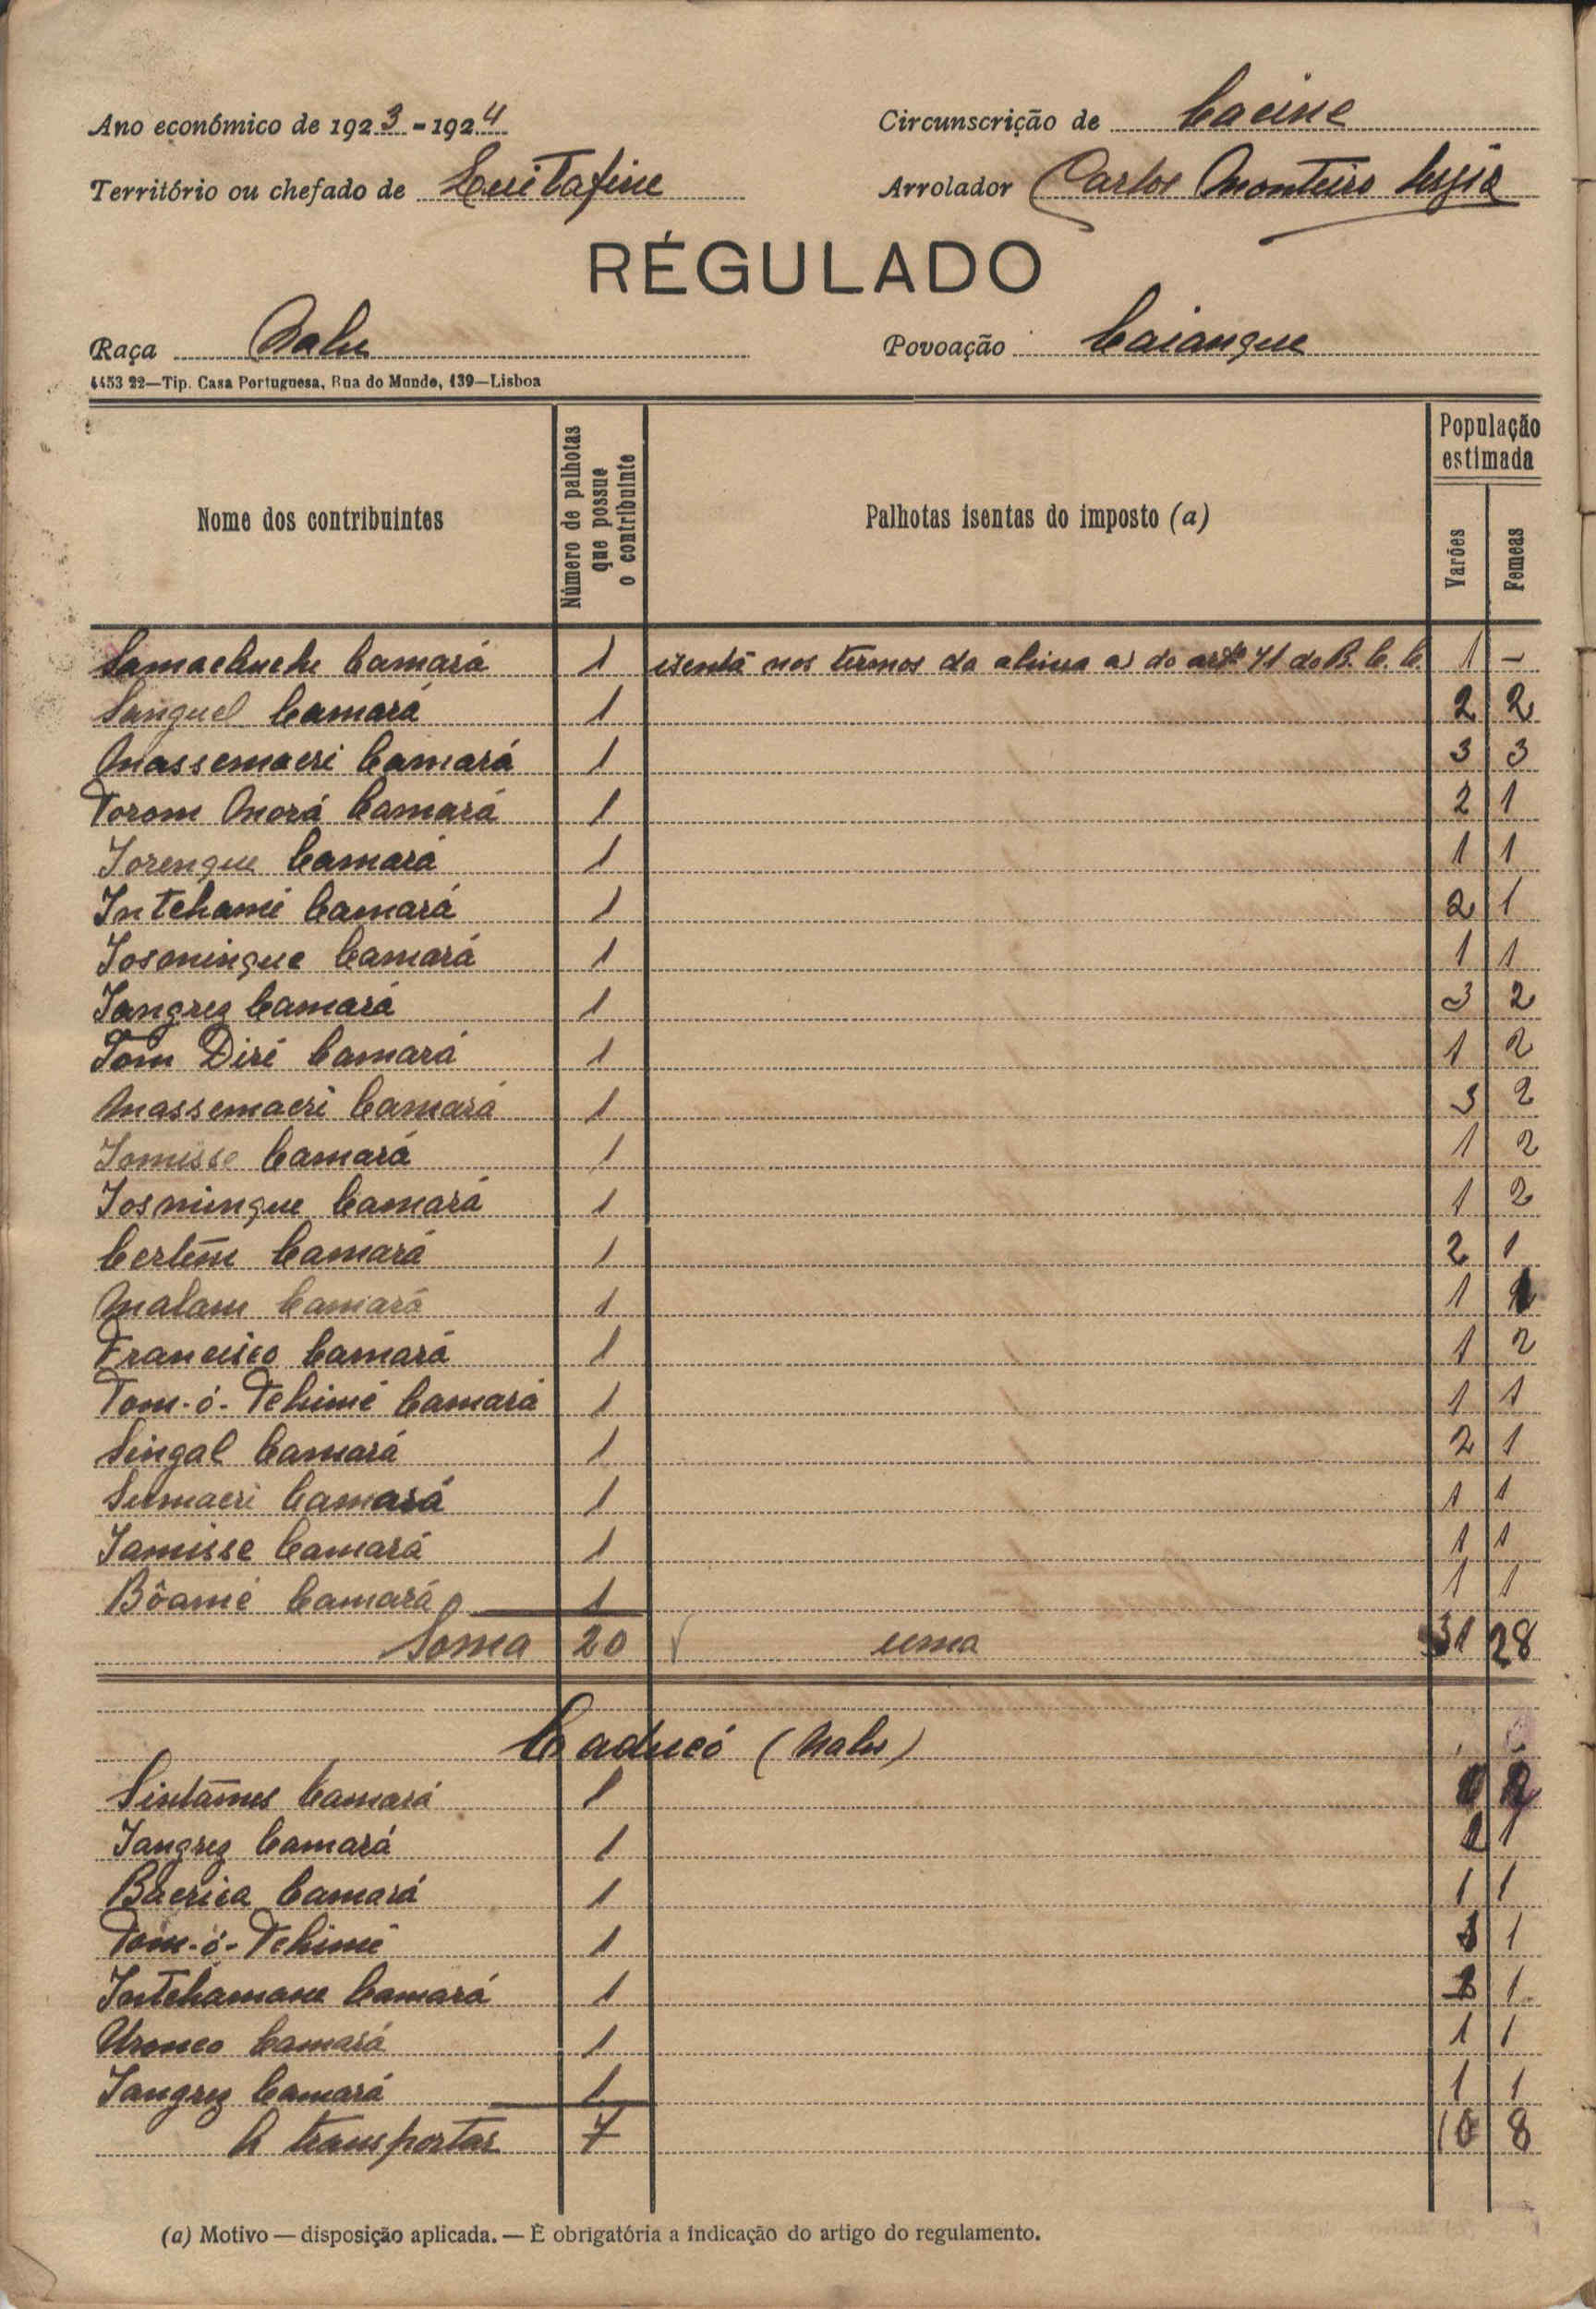 Ano económico de 1923-1924 Circunscrição de Cacine
Território ou chefado de Quitafine Arrolador Carlos Monteiro
RÉGULADO
Raça Nalu Povoação Caiangue
4453 22—Tip. Casa Portuguesa, Rua do Mundo, 139—Lisboa
Nome dos contribuintes Número de palhotas que possue o contribuinte Palhotas isentas do imposto (a) População estimada Varões Femeas
Camará 1 isenta nos termos da alinea a) do artº 71 do R. C. C. 1 -
Sanguel Camará 1 2 2
Massemaeri Camará 1 3 3
Torom Morá Camará 1 2 1
Torengue Camará 1 1 1
Intchamé Camará 1 2 1
Iosmingue Camará 1 1 1
Iangrez Camará 1 3 2
Tom Diré Camará 1 1 2
Massemaeri Camará 1 3 2
Iomisse Camará 1 1 2
Iosmingue Camará 1 1 2
Camará 1 2 1
Malam Camará 1 1
Francisco Camará 1 1 2
Tom-ó-Tchimé Camará 1 1 1
Singal Camará 1 2 1
Sumaeri Camará 1 1 1
Iamisse Camará 1 1 1
Bôamé Camará 1 1 1
Soma 20 uma 31 28
Caducó (Nalu)
Camará 1
Iangrez Camará 1 1
Camará 1 1 1
Tom-ó-Tchimé 1 1
Intchamane Camará 1 1
Camará 1 1 1
Iangrez Camará 1 1 1
A transportar 7 10 8
(a) Motivo — disposição aplicada. — É obrigatória a indicação do artigo do regulamento.